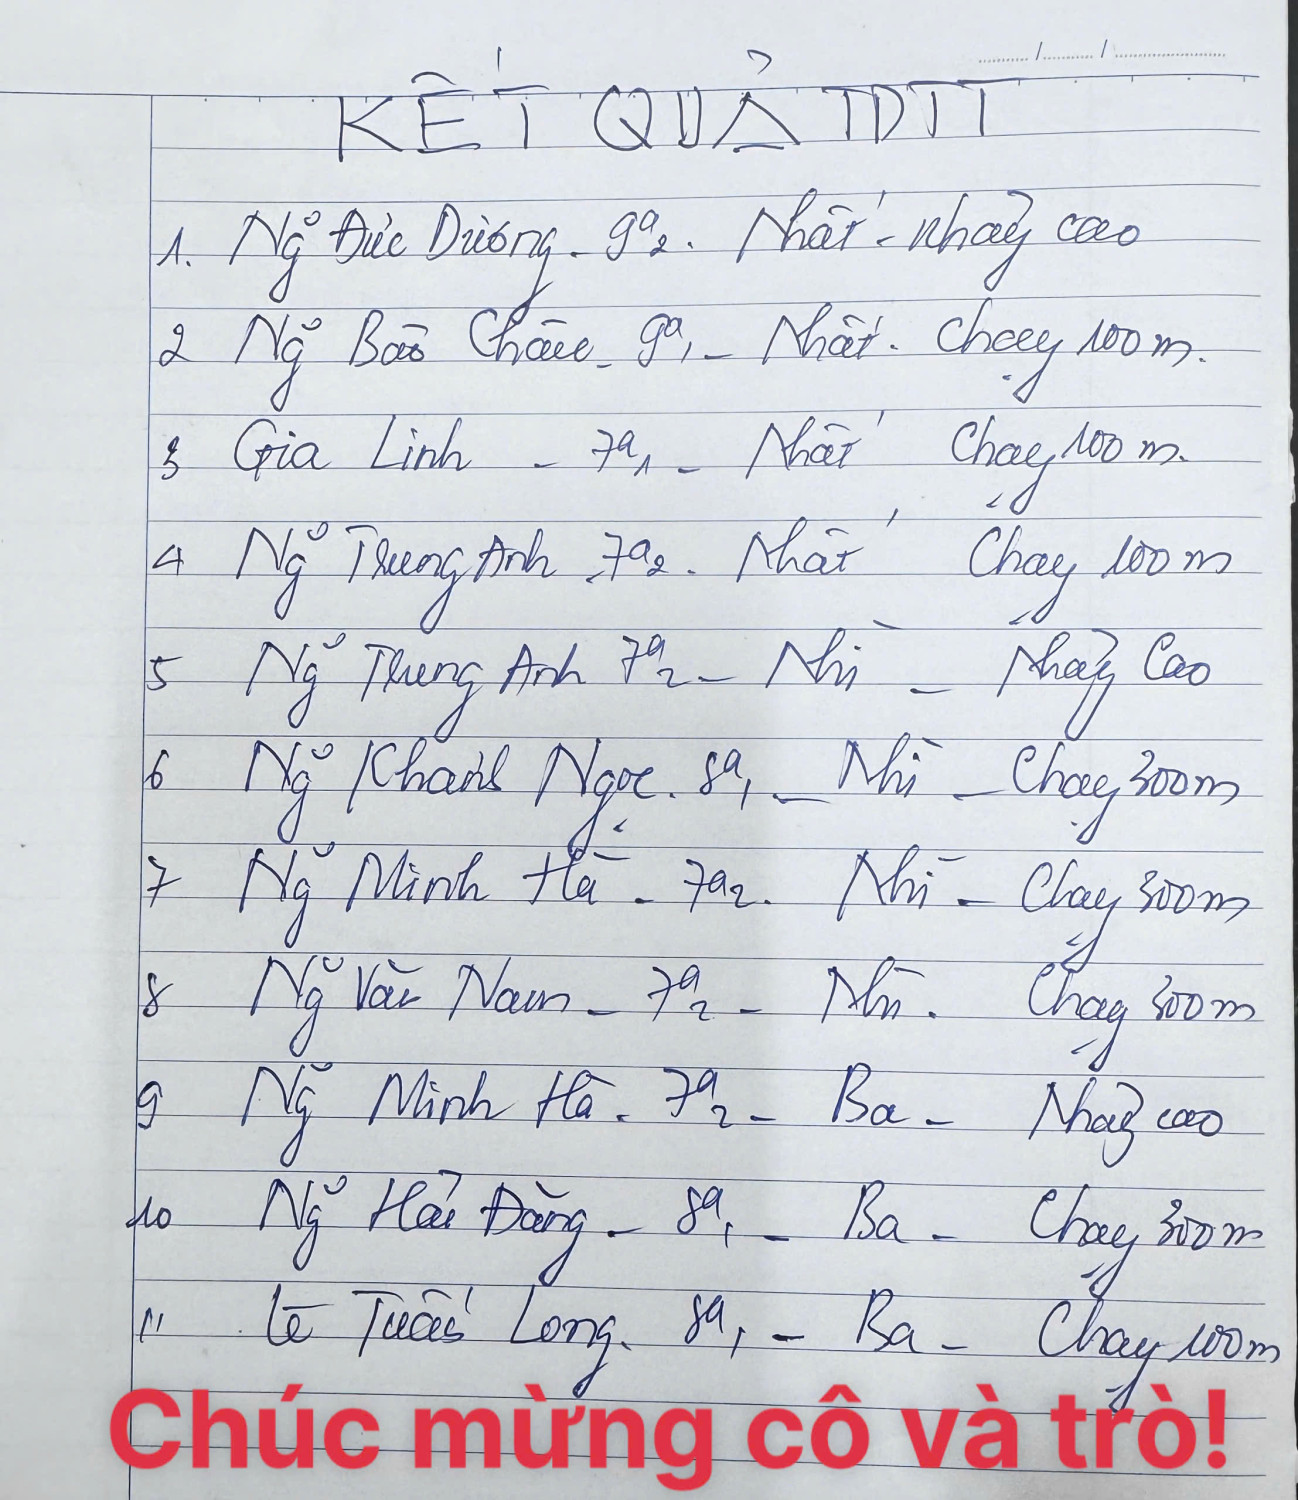 KẾT QUẢ TDTT
1. Ng̃ Đức Dương - 9a2. Nhất - nhảy cao
2 Ng̃ Bảo Châu - 9a1 - Nhất - Chạy 100m.
3 Gia Linh - 7a1 - Nhất Chạy 100m.
4 Ng̃ Trung Anh - 7a2. Nhất Chạy 100m
5 Ng̃ Trung Anh 7a2 - Nhì - Nhảy Cao
6 Ng̃ Khánh Ngọc - 8a1 - Nhì - Chạy 300m
7 Ng̃ Minh Hà - 7a2. Nhì - Chạy 300m
8 Ng̃ Văn Nam - 7a2 - Nhì. Chạy 300m
9 Ng̃ Minh Hà - 7a2 - Ba - Nhảy cao
10 Ng̃ Hải Đăng - 8a1 - Ba - Chạy 300m
11 Lê Tuấn Long. 8a1 - Ba - Chạy 100m
Chúc mừng cô và trò!